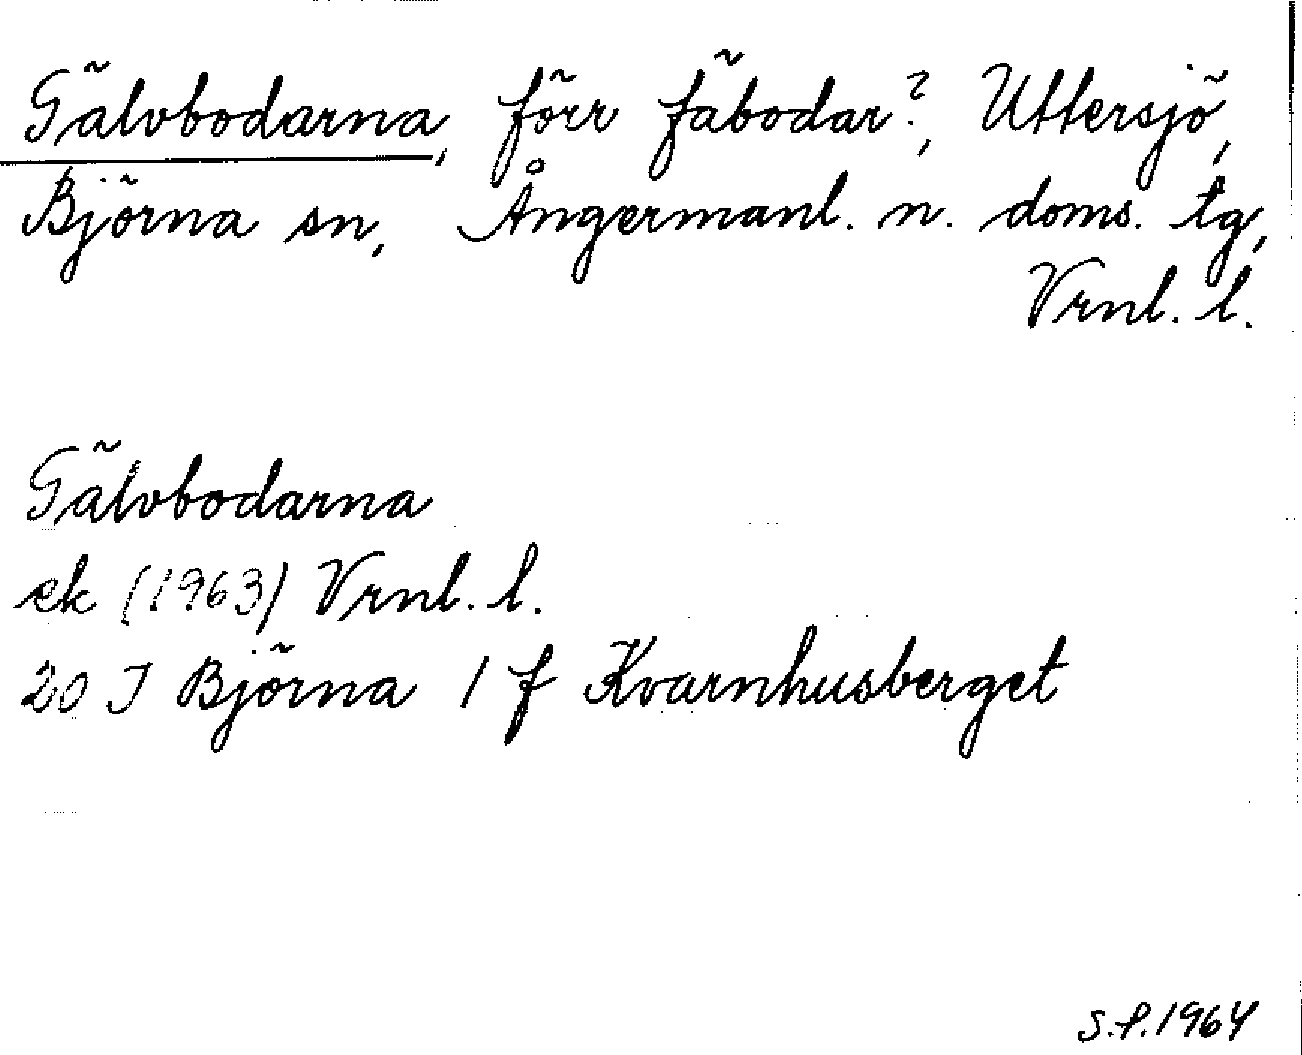 Gälvbodarna, förr fäbodar?, Uttersjö,
Björna sn, Ångermanl. n. doms. tg,
Vrnl. l.
Gälvbodarna
ek (1963) Vrnl. l.
20 J Björna 1 f Kvarnhusberget
S.P.1964